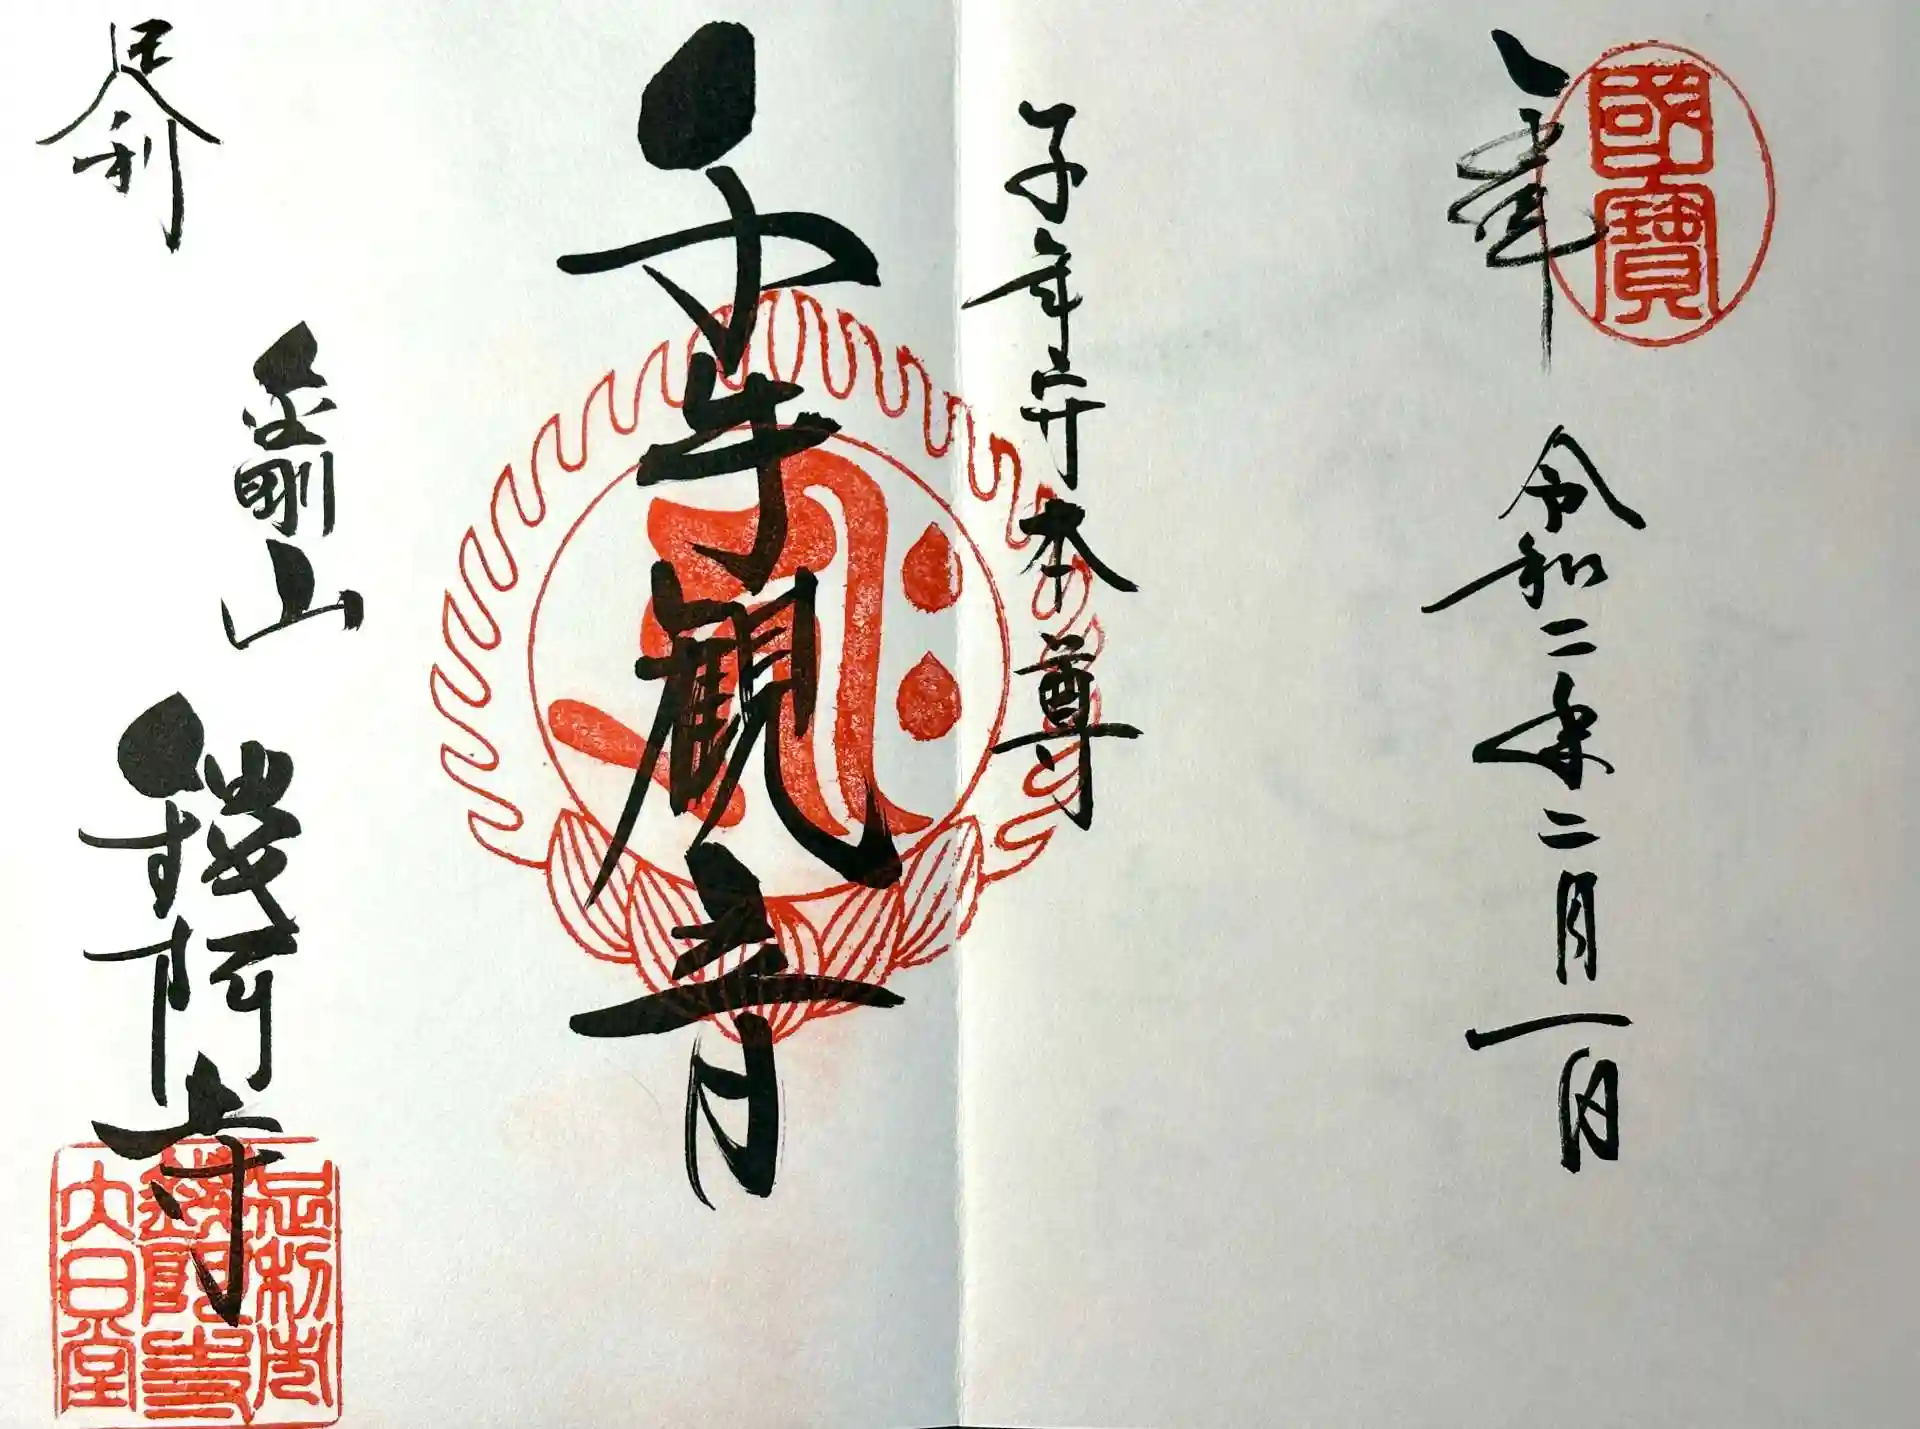 國寶
令和二年二月一日
子年守本尊
千手観音
足利
金剛山
鑁阿寺
足利市
鑁阿寺
大日堂